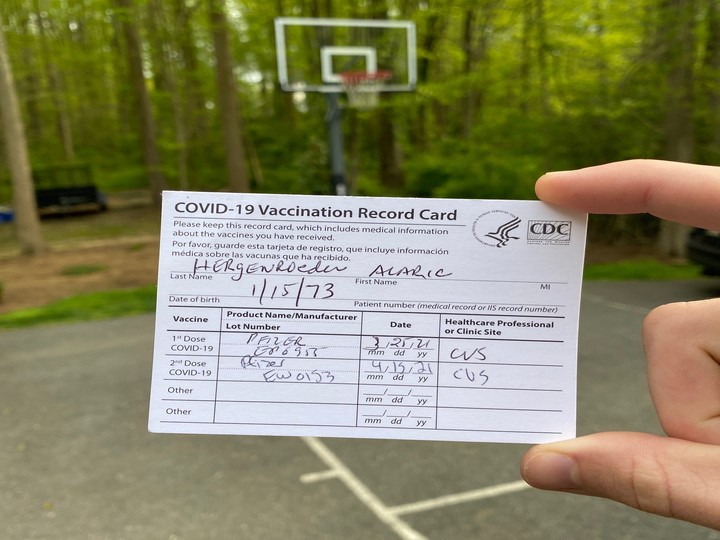 COVID-19 Vaccination Record Card
CDC
Please keep this record card, which includes medical information
about the vaccines you have received.
Por favor, guarde esta tarjeta de registro, que incluye información
médica sobre las vacunas que ha recibido.
HERGENROEDER ALARIC
Last Name First Name MI
1/15/73
Date of birth Patient number (medical record or IIS record number)
Vaccine Product Name/Manufacturer Date Healthcare Professional
Lot Number or Clinic Site
1st Dose PFIZER 3/25/21 CVS
COVID-19 mm dd yy
2nd Dose Pfizer 4/15/21 CVS
COVID-19 EW0153 mm dd yy
Other
mm dd yy
Other
mm dd yy